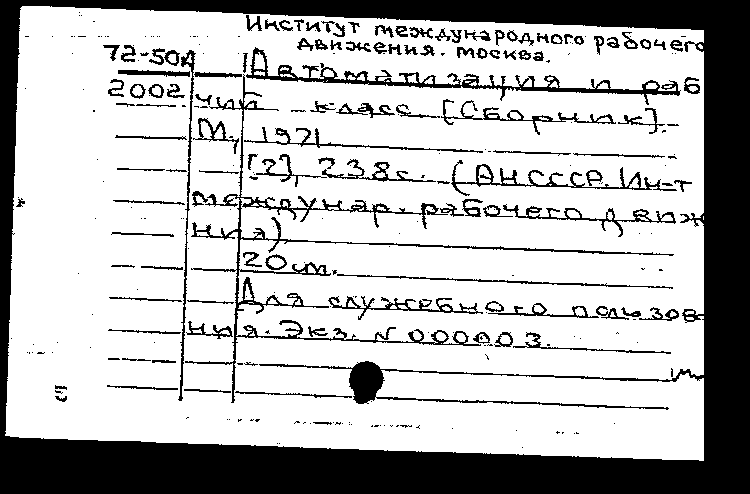 Институт международного рабочего
движения. Москва.
72-50А
Автоматизация и раб
2002
чий класс [Сборник].
М., 1971.
[2], 238с. (АН СССР. Ин-т
междунар. рабочего движ
ния).
20см.
Для служебного пользов-
ния. Экз. N 000003.